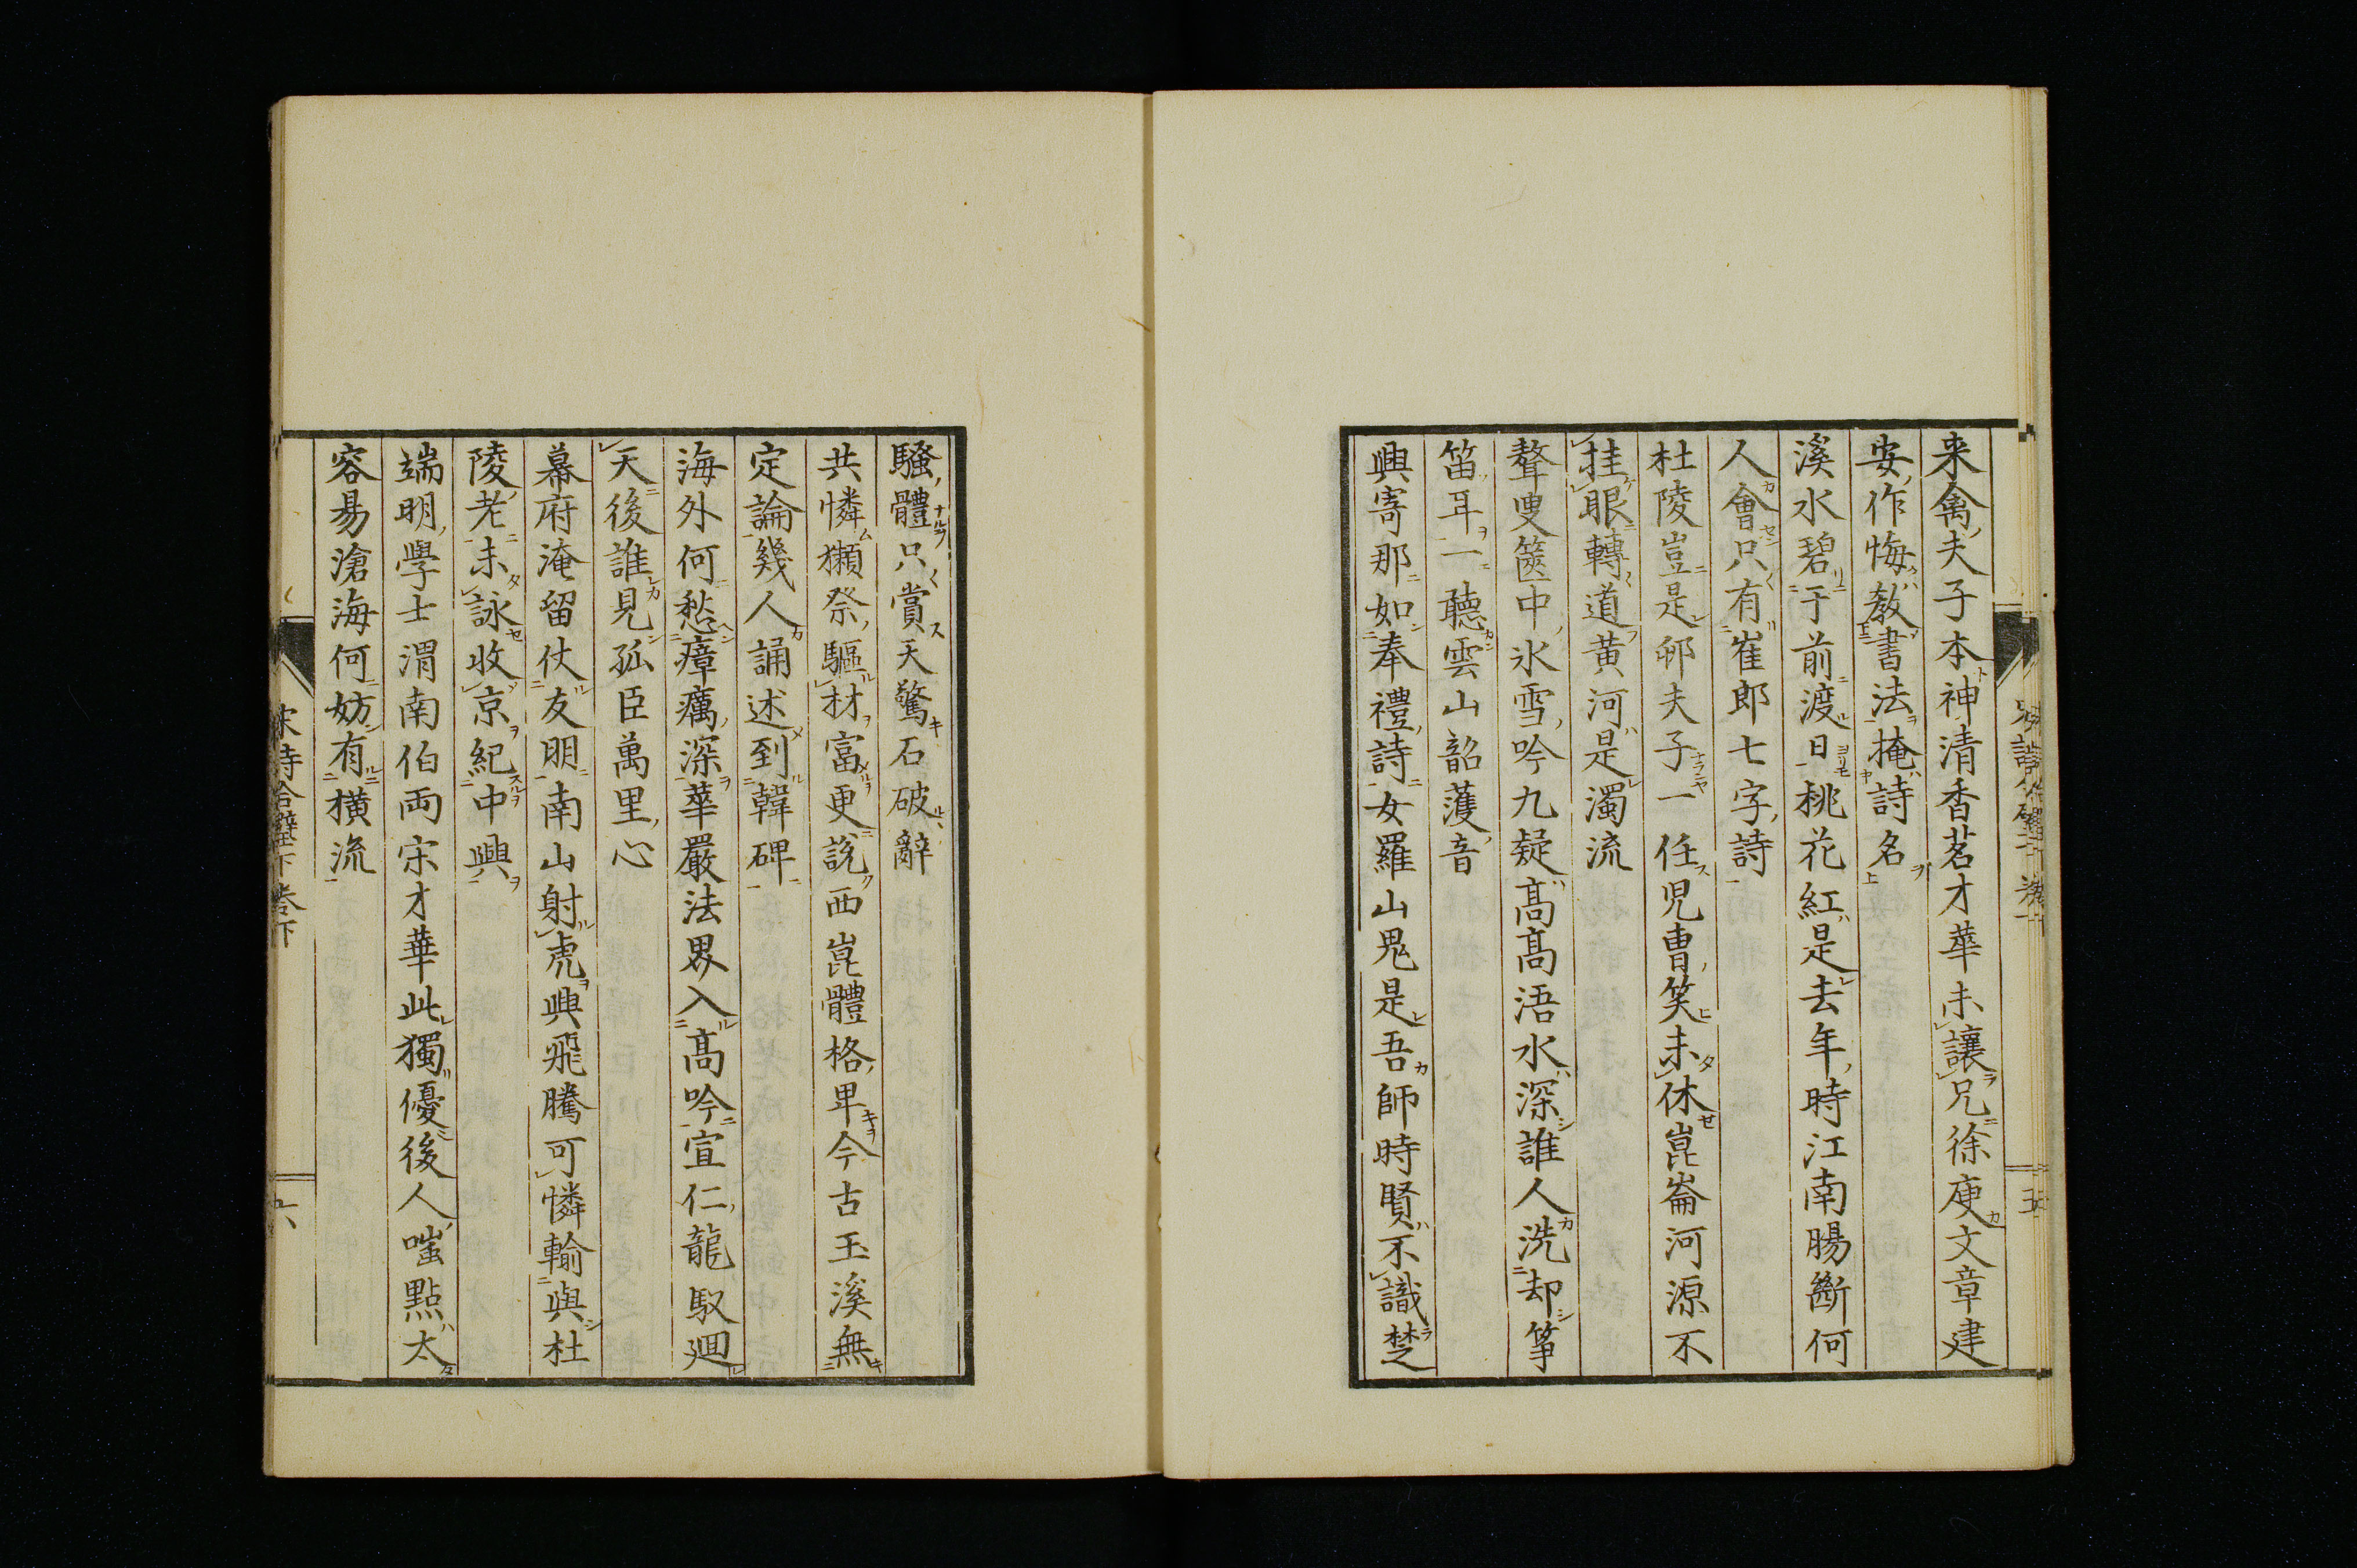 来禽夫子本神清香茗才華未讓兄徐庾文章建
安作悔教書法掩詩名
溪水碧于前渡日桃花紅是去年時江南腸斷何
人會只有崔郎七字詩
杜陵豈是郷夫子一任児曹笑未休崑崙河源不
挂眼轉道黄河是濁流
聱叟篋中冰雪吟九疑髙髙浯水深誰人洗却箏
笛耳一聽雲山韶濩音
興寄那如奉禮詩女羅山鬼是吾師時賢不識楚
騷體只賞天驚石破辭
共憐獺祭驅材富更説西崑體格卑今古玉溪無
定論幾人誦述到韓碑
海外何愁瘴癘深華嚴法界入髙吟宣仁龍馭廻
天後誰見孤臣萬里心
幕府淹留仗友朋南山射虎興飛騰可憐輸與杜
陵老未詠收京紀中興
端明學士渭南伯両宋才華此獨優後人嗤點太
容易滄海何妨有横流
宋詩合璧下 巻下
六